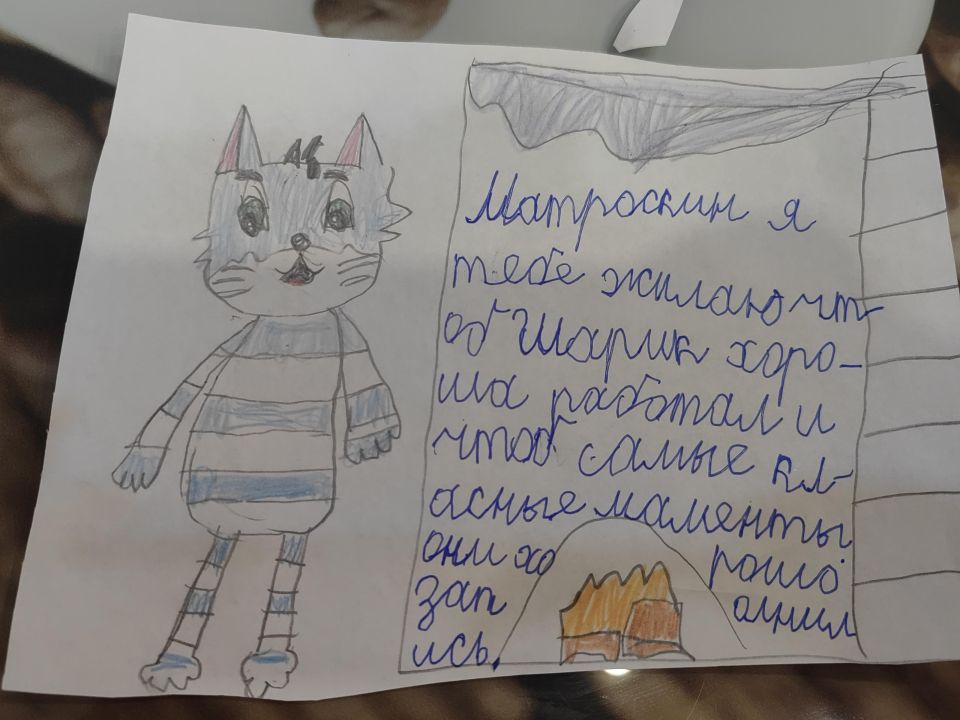 Матроскин я
тебе жилаю чт-
об Шарик харо-
ша работал и
чтоб самые кл-
асные маменты
они хо рошо
зап омнил
ись.